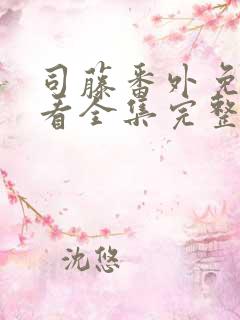 司藤番外免
看全集完整
沈悠